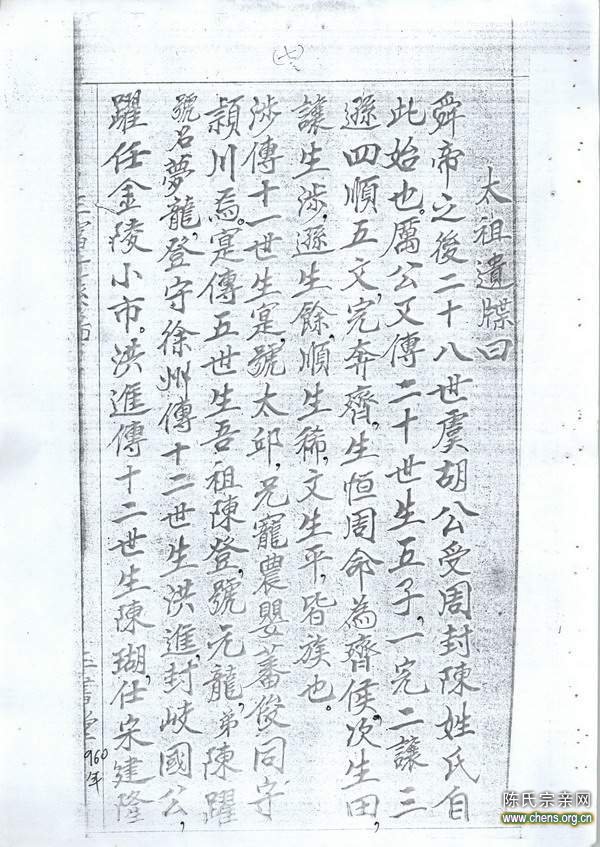 (七)
太祖遺牒曰
舜帝之後二十八世虞胡公受周封陳姓氏自
此始也。厲公又傳二十世生五子，一完二讓三
遜四順五文，完奔齊，生恒周命為齊侯次生田，
讓生涉，遜生餘，順生稀，文生平，皆族也。
涉傳十一世生寔，號太邱，兄寵農嬰蕃俊同守
潁川焉。寔傳五世生吾祖陳登，號元龍，弟陳躍
號名夢龍，登守徐州傳十二世生洪進，封岐國公，
躍任金陵小市。洪進傳十二世生陳瑚，任宋建隆
960年
陈氏宗亲网
www.chens.org.cn